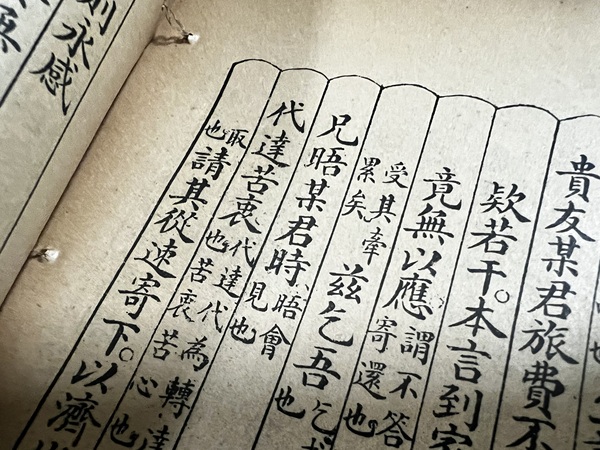 貴友某君旅費不
欵若干。本言到家
竟無以應謂不答寄還也
受其牽累矣茲乞吾乞也
兄晤某君時晤會見也
代達苦衷代達代為轉達也苦衷苦心也
取也請其從速寄下。以濟
永感